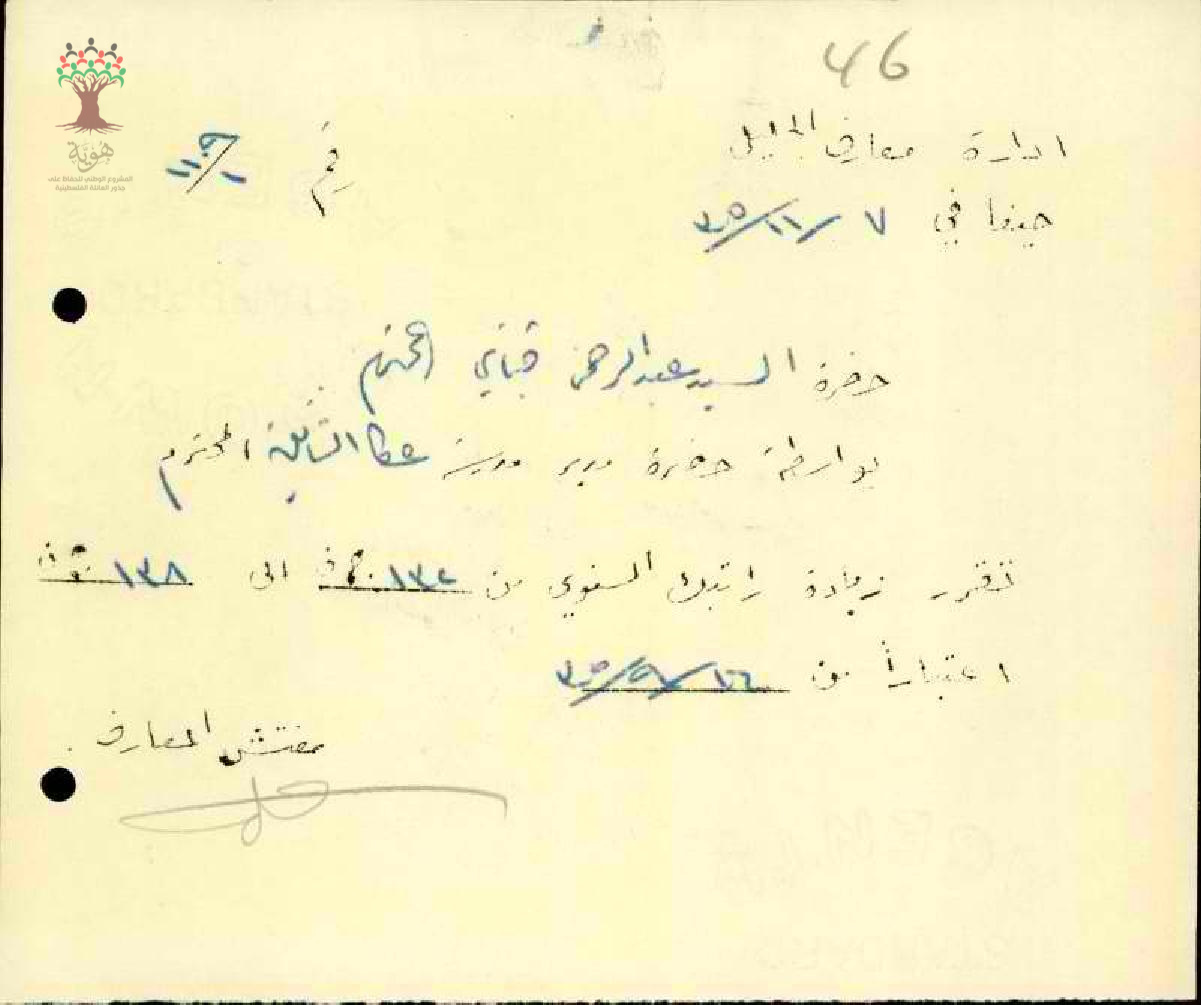 46
ادارة معارف الجليل
رقم
حيفا في ٧/١١/٣٥
حضرة السيد عبدالرحمن قباني المحترم
بواسطة حضرة مدير مدرسة عكا الثانوية المحترم
تقرر زيادة راتبك السنوي من ١٣٢ جنيه الى ١٣٨
اعتباراً من
مفتش المعارف
هُوِيَّة
المشروع الوطني للحفاظ على
جذور العائلة الفلسطينية